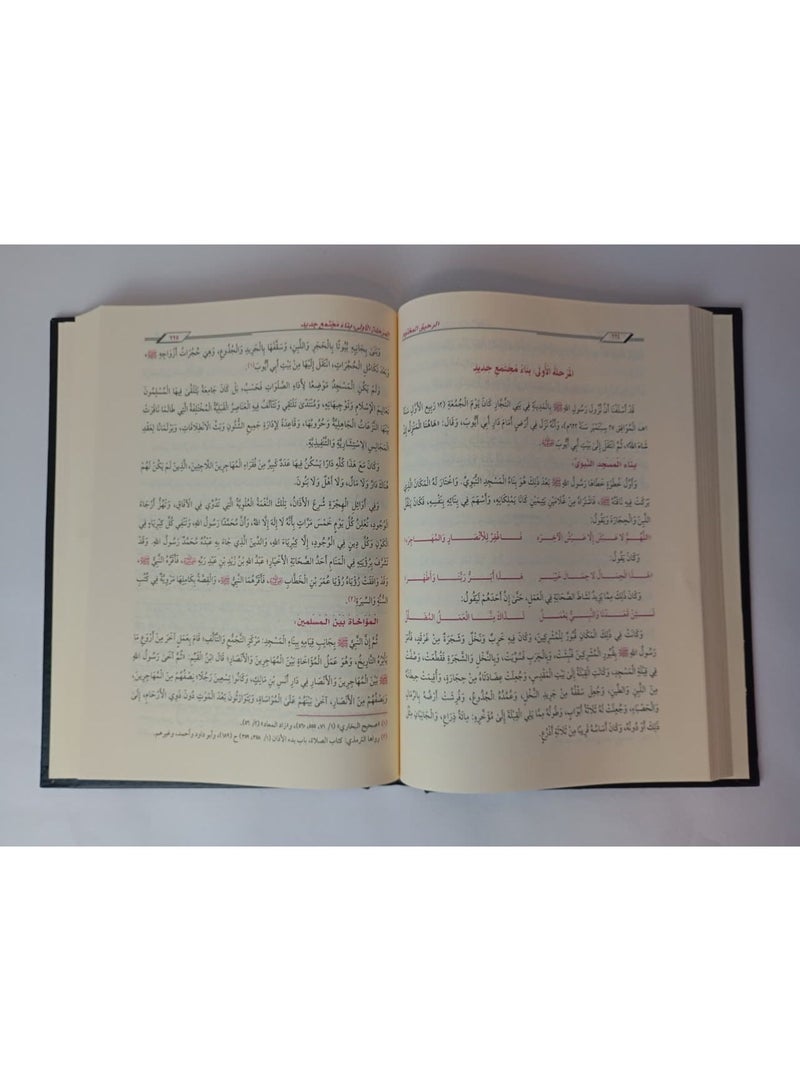 ٢٢٤
الرحيق المختوم
المرحلة الأولى: بناء مجتمع جديد
قَدْ أَسْلَفْنَا أَنَّ نُزُولَ رَسُولِ اللهِ ﷺ بِالْمَدِينَةِ فِي بَنِي النَّجَّارِ كَانَ يَوْمَ الْجُمُعَةِ (١٢ رَبِيع الْأَوَّل سَنَةَ
١هـ الْمُوَافِق ٢٧ سِبْتَمْبَر سَنَةَ ٦٢٢م)، وَأَنَّهُ نَزَلَ فِي أَرْضٍ أَمَامَ دَارِ أَبِي أَيُّوبَ، وَقَالَ: «هَاهُنَا الْمَنْزِلُ إِنْ
شَاءَ اللهُ»، ثُمَّ انْتَقَلَ إِلَى بَيْتِ أَبِي أَيُّوبَ
بناء المسجد النبوي:
وَأَوَّلُ خُطْوَةٍ خَطَاهَا رَسُولُ اللهِ ﷺ بَعْدَ ذَلِكَ هُوَ بِنَاءُ الْمَسْجِدِ النَّبَوِيِّ، وَاخْتَارَ لَهُ الْمَكَانَ الَّذِي
بَرَكَتْ فِيهِ نَاقَتُهُ ﷺ، فَاشْتَرَاهُ مِنْ غُلَامَيْنِ يَتِيمَيْنِ كَانَا يَمْلِكَانِهِ، وَأَسْهَمَ فِي بِنَائِهِ بِنَفْسِهِ، فَكَانَ يَنْقُلُ
اللَّبِنَ وَالْحِجَارَةَ وَيَقُولُ:
اللَّهُمَّ لَا عَيْشَ إِلَّا عَيْشُ الْآخِرَهْ فَاغْفِرْ لِلْأَنْصَارِ وَالْمُهَاجِرَهْ
وَكَانَ يَقُولُ:
هَذَا الْحِمَالُ لَا حِمَالَ خَيْبَرْ هَذَا أَبَرُّ رَبَّنَا وَأَطْهَرْ
وَكَانَ ذَلِكَ مِمَّا يَزِيدُ نَشَاطَ الصَّحَابَةِ فِي الْعَمَلِ، حَتَّى إِنَّ أَحَدَهُمْ لَيَقُولُ:
لَئِنْ قَعَدْنَا وَالنَّبِيُّ يَعْمَلُ لَذَاكَ مِنَّا الْعَمَلُ الْمُضَلَّلُ
وَكَانَتْ فِي ذَلِكَ الْمَكَانِ قُبُورٌ لِلْمُشْرِكِينَ، وَكَانَ فِيهِ خَرِبٌ وَنَخْلٌ وَشَجَرَةٌ مِنْ غَرْقَدٍ، فَأَمَرَ
رَسُولُ اللهِ ﷺ بِقُبُورِ الْمُشْرِكِينَ فَنُبِشَتْ، وَبِالْخَرِبِ فَسُوِّيَتْ، وَبِالنَّخْلِ وَالشَّجَرَةِ فَقُطِعَتْ، وَصُفَّتْ
فِي قِبْلَةِ الْمَسْجِدِ، وَكَانَتِ الْقِبْلَةُ إِلَى بَيْتِ الْمَقْدِسِ، وَجُعِلَتْ عِضَادَتَاهُ مِنْ حِجَارَةٍ، وَأُقِيمَتْ حِيطَانُهُ
مِنَ اللَّبِنِ وَالطِّينِ، وَجُعِلَ سَقْفُهُ مِنْ جَرِيدِ النَّخْلِ، وَعُمُدُهُ الْجُذُوعَ، وَفُرِشَتْ أَرْضُهُ بِالرِّمَالِ
وَالْحَصْبَاءِ، وَجُعِلَتْ لَهُ ثَلَاثَةُ أَبْوَابٍ، وَطُولُهُ مِمَّا يَلِي الْقِبْلَةَ إِلَى مُؤَخَّرِهِ: مِائَةُ ذِرَاعٍ، وَالْجَانِبَانِ مِثْلُ
ذَلِكَ أَوْ دُونَهُ، وَكَانَ أَسَاسُهُ قَرِيبًا مِنْ ثَلَاثَةِ أَذْرُعٍ.
المرحلة الأولى: بناء مجتمع جديد
٢٢٥
وَبَنَى بِجَانِبِهِ بُيُوتًا بِالْحَجَرِ وَاللَّبِنِ، وَسَقْفُهَا بِالْجَرِيدِ وَالْجُذُوعِ، وَهِيَ حُجُرَاتُ أَزْوَاجِهِ ﷺ،
وَبَعْدَ تَكَامُلِ الْحُجُرَاتِ، انْتَقَلَ إِلَيْهَا مِنْ بَيْتِ أَبِي أَيُّوبَ(١).
وَلَمْ يَكُنِ الْمَسْجِدُ مَوْضِعًا لِأَدَاءِ الصَّلَوَاتِ فَحَسْبُ، بَلْ كَانَ جَامِعَةً يَتَلَقَّى فِيهَا الْمُسْلِمُونَ
تَعَالِيمَ الْإِسْلَامِ وَتَوْجِيهَاتِهِ، وَمُنْتَدًى تَلْتَقِي وَتَتَآلَفُ فِيهِ الْعَنَاصِرُ الْقَبَلِيَّةُ الْمُخْتَلِفَةُ الَّتِي طَالَمَا نَافَرَتْ
بَيْنَهَا النَّزَعَاتُ الْجَاهِلِيَّةُ وَحُرُوبُهَا، وَقَاعِدَةً لِإِدَارَةِ جَمِيعِ الشُّئُونِ وَبَثِّ الِانْطِلَاقَاتِ، وَبَرْلَمَانًا لِعَقْدِ
الْمَجَالِسِ الِاسْتِشَارِيَّةِ وَالتَّنْفِيذِيَّةِ.
وَكَانَ مَعَ هَذَا كُلِّهِ دَارًا يَسْكُنُ فِيهَا عَدَدٌ كَبِيرٌ مِنْ فُقَرَاءِ الْمُهَاجِرِينَ اللَّاجِئِينَ، الَّذِينَ لَمْ يَكُنْ لَهُمْ
هُنَاكَ دَارٌ وَلَا مَالٌ، وَلَا أَهْلٌ وَلَا بَنُونَ.
وَفِي أَوَائِلِ الْهِجْرَةِ شُرِعَ الْأَذَانُ، تِلْكَ النَّغْمَةُ الْعُلْوِيَّةُ الَّتِي تُدَوِّي فِي الْآفَاقِ، وَتَهُزُّ أَرْجَاءَ
الْوُجُودِ، تُعْلِنُ كُلَّ يَوْمٍ خَمْسَ مَرَّاتٍ بِأَنَّهُ لَا إِلَهَ إِلَّا اللهُ، وَأَنَّ مُحَمَّدًا رَسُولُ اللهِ، وَتَنْفِي كُلَّ كِبْرِيَاءَ فِي
الْكَوْنِ وَكُلَّ دِينٍ فِي الْوُجُودِ، إِلَّا كِبْرِيَاءَ اللهِ، وَالدِّينَ الَّذِي جَاءَ بِهِ عَبْدُهُ مُحَمَّدٌ رَسُولُ اللهِ. وَقَدْ
تَشَرَّفَ بِرُؤْيَتِهِ فِي الْمَنَامِ أَحَدُ الصَّحَابَةِ الْأَخْيَارِ؛ عَبْدُ اللهِ بْنُ زَيْدِ بْنِ عَبْدِ رَبِّهِ، فَأَقَرَّهُ النَّبِيُّ
ﷺ، وَقَدْ وَافَقَتْ رُؤْيَاهُ رُؤْيَا عُمَرَ بْنِ الْخَطَّابِ، فَأَقَرَّهُمَا النَّبِيُّ ﷺ، وَالْقِصَّةُ بِكَامِلِهَا مَرْوِيَّةٌ فِي كُتُبِ
السُّنَّةِ وَالسِّيرَةِ(٢).
المؤاخاة بين المسلمين:
ثُمَّ إِنَّ النَّبِيَّ ﷺ بِجَانِبِ قِيَامِهِ بِبِنَاءِ الْمَسْجِدِ: مَرْكَزِ التَّجَمُّعِ وَالتَّآلُفِ؛ قَامَ بِعَمَلٍ آخَرَ مِنْ أَرْوَعِ مَا
يَأْثُرُهُ التَّارِيخُ، وَهُوَ عَمَلُ الْمُؤَاخَاةِ بَيْنَ الْمُهَاجِرِينَ وَالْأَنْصَارِ؛ قَالَ ابْنُ الْقَيِّمِ: «ثُمَّ آخَى رَسُولُ اللهِ
ﷺ بَيْنَ الْمُهَاجِرِينَ وَالْأَنْصَارِ فِي دَارِ أَنَسِ بْنِ مَالِكٍ، وَكَانُوا تِسْعِينَ رَجُلًا؛ نِصْفُهُمْ مِنَ الْمُهَاجِرِينَ،
وَنِصْفُهُمْ مِنَ الْأَنْصَارِ، آخَى بَيْنَهُمْ عَلَى الْمُوَاسَاةِ، وَيَتَوَارَثُونَ بَعْدَ الْمَوْتِ دُونَ ذَوِي الْأَرْحَامِ، إِلَى
(١) «صحيح البخاري» (١/ ٧١، ٥٥٥، ٥٦٠)، و«زاد المعاد» (٢/ ٥٦).
(٢) رواها الترمذي: كتاب الصلاة، باب بدء الأذان (١/ ٣٥٨، ٣٥٩) ح (١٨٩)، وأبو داود وأحمد، وغيرهم.